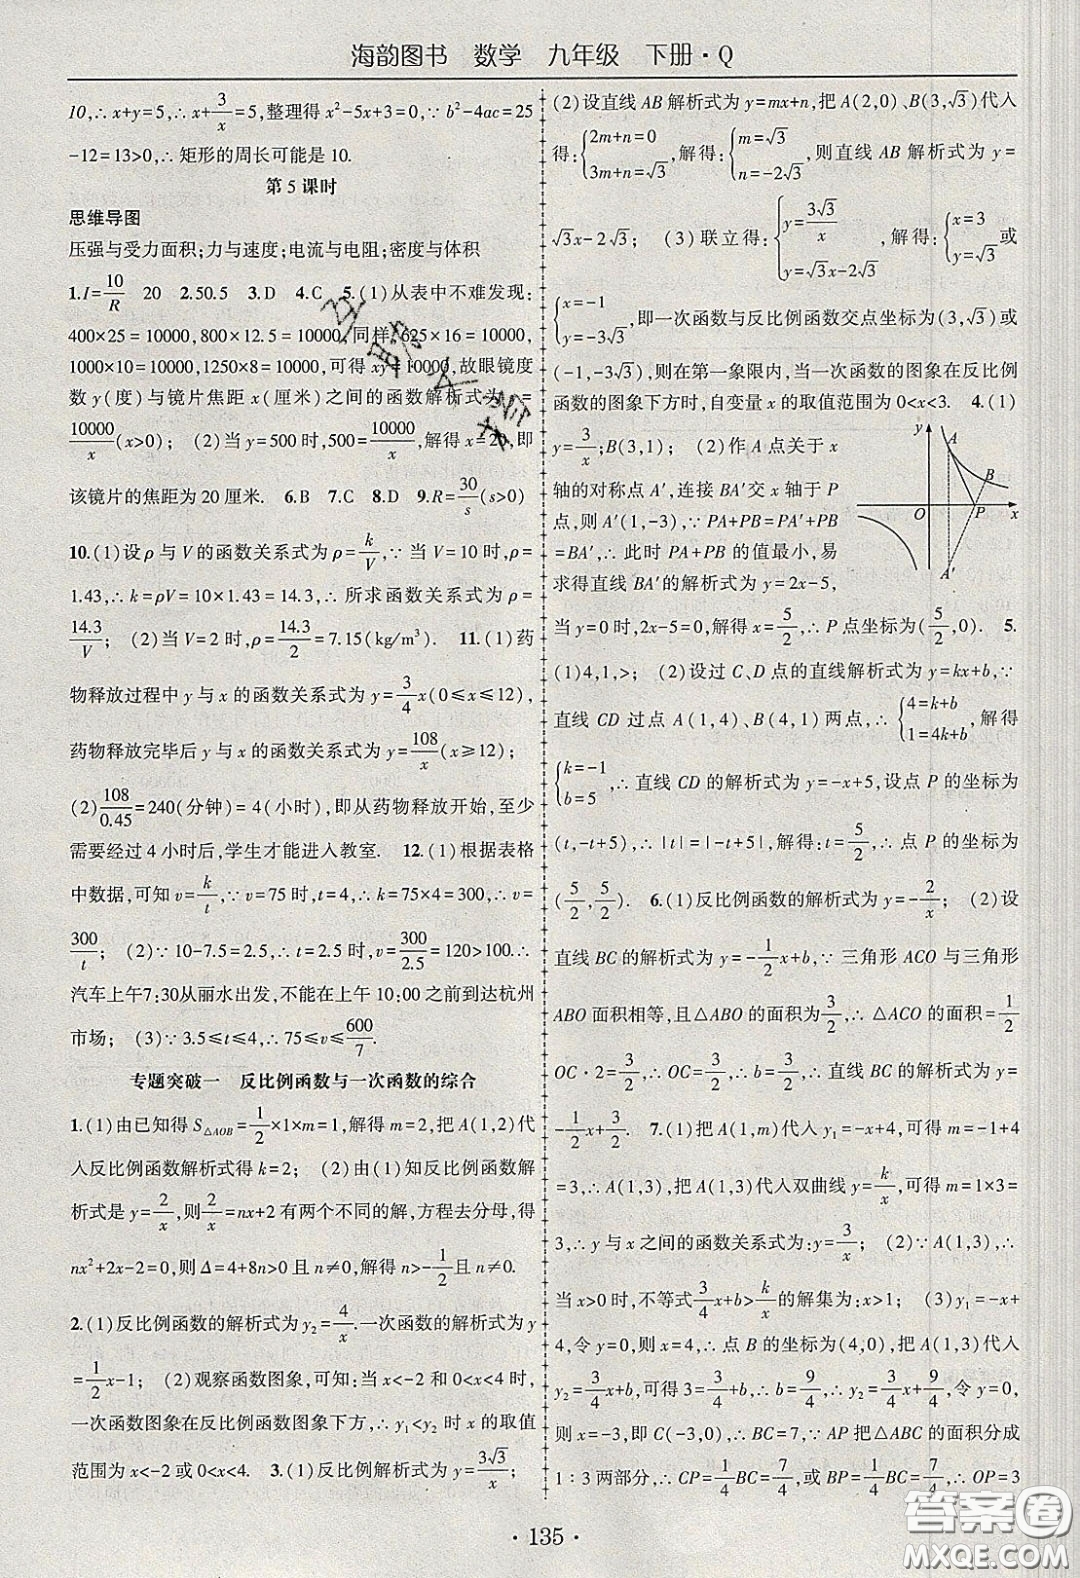 海韵图书 数学 九年级 下册·Q
10,∴x+y=5,∴x+3/x=5,整理得x²-5x+3=0,∵b²-4ac=25
-12=13>0,∴矩形的周长可能是10.
第5课时
思维导图
压强与受力面积;力与速度;电流与电阻;密度与体积
1.I=10/R 20 2.50.5 3.D 4.C 5.(1)从表中不难发现:
400×25=10000,800×12.5=10000,同样,625×16=10000,
1000×10=10000,1250×8=10000,可得xy=10000,故眼镜度
数y(度)与镜片焦距x(厘米)之间的函数解析式为y=
10000/x(x>0); (2)当y=500时,500=10000/x,解得x=20,即
该镜片的焦距为20厘米. 6.B 7.C 8.D 9.R=30/s(s>0)
10.(1)设ρ与V的函数关系式为ρ=k/V,∵当V=10时,ρ=
1.43,∴k=ρV=10×1.43=14.3,∴所求函数关系式为ρ=
14.3/V; (2)当V=2时,ρ=14.3/2=7.15(kg/m³). 11.(1)药
物释放过程中y与x的函数关系式为y=3/4x(0≤x≤12),
药物释放完毕后y与x的函数关系式为y=108/x(x≥12);
(2)108/0.45=240(分钟)=4(小时),即从药物释放开始,至少
需要经过4小时后,学生才能进入教室. 12.(1)根据表格
中数据,可知v=k/t,∵v=75时,t=4,∴k=75×4=300,∴v=
300/t; (2)∵10-7.5=2.5,∴t=2.5时,v=300/2.5=120>100.∴
汽车上午7:30从丽水出发,不能在上午10:00之前到达杭州
市场; (3)∵3.5≤t≤4,∴75≤v≤600/7.
专题突破一 反比例函数与一次函数的综合
1.(1)由已知得S△AOB=1/2×1×m=1,解得m=2,把A(1,2)代
入反比例函数解析式得k=2; (2)由(1)知反比例函数解
析式是y=2/x,则2/x=nx+2有两个不同的解,方程去分母,得
nx²+2x-2=0,则Δ=4+8n>0且n≠0,解得n>-1/2且n≠0.
2.(1)反比例函数的解析式为y₂=4/x.一次函数的解析式为y
=1/2x-1; (2)观察函数图象,可知:当x<-2和0<x<4时,
一次函数图象在反比例函数图象下方,∴y₁<y₂时x的取值
范围为x<-2或0<x<4. 3.(1)反比例解析式为y=3√3/x;
(2)设直线AB解析式为y=mx+n,把A(2,0)、B(3,√3)代入
得:{2m+n=0 3m+n=√3,解得:{m=√3 n=-2√3,则直线AB解析式为y=
√3x-2√3; (3)联立得:{y=3√3/x y=√3x-2√3,解得:{x=3 y=√3或
{x=-1 y=-3√3,即一次函数与反比例函数交点坐标为(3,√3)或
(-1,-3√3),则在第一象限内,当一次函数的图象在反比例
函数的图象下方时,自变量x的取值范围为0<x<3. 4.(1)
y=3/x;B(3,1); (2)作A点关于x
轴的对称点A′,连接BA′交x轴于P
点,则A′(1,-3),∵PA+PB=PA′+PB
=BA′,∴此时PA+PB的值最小,易
求得直线BA′的解析式为y=2x-5,
y A B O P x A′
当y=0时,2x-5=0,解得x=5/2,∴P点坐标为(5/2,0). 5.
(1)4,1,>; (2)设过C、D点的直线解析式为y=kx+b,∵
直线CD过点A(1,4)、B(4,1)两点,∴{4=k+b 1=4k+b,解得
{k=-1 b=5,∴直线CD的解析式为y=-x+5,设点P的坐标为
(t,-t+5),∴|t|=|-t+5|,解得:t=5/2,∴点P的坐标为
(5/2,5/2). 6.(1)反比例函数的解析式为y=-2/x; (2)设
直线BC的解析式为y=-1/2x+b,∵三角形ACO与三角形
ABO面积相等,且△ABO的面积为3/2,∴△ACO的面积=1/2
OC·2=3/2,∴OC=3/2,∴b=3/2,∴直线BC的解析式为y=
-1/2x+3/2. 7.(1)把A(1,m)代入y₁=-x+4,可得m=-1+4
=3,∴A(1,3),把A(1,3)代入双曲线y=k/x,可得m=1×3=
3,∴y与x之间的函数关系式为:y=3/x; (2)∵A(1,3),∴
当x>0时,不等式3/4x+b>k/x的解集为:x>1; (3)y₁=-x+
4,令y=0,则x=4,∴点B的坐标为(4,0),把A(1,3)代入
y₂=3/4x+b,可得3=3/4+b,∴b=9/4,∴y₂=3/4x+9/4,令y=0,则
x=-3,即C(-3,0),∴BC=7,∵AP把△ABC的面积分成
1:3两部分,∴CP=1/4BC=7/4,或BP=1/4BC=7/4,∴OP=3
·135·
答案圈
MXQE.COM